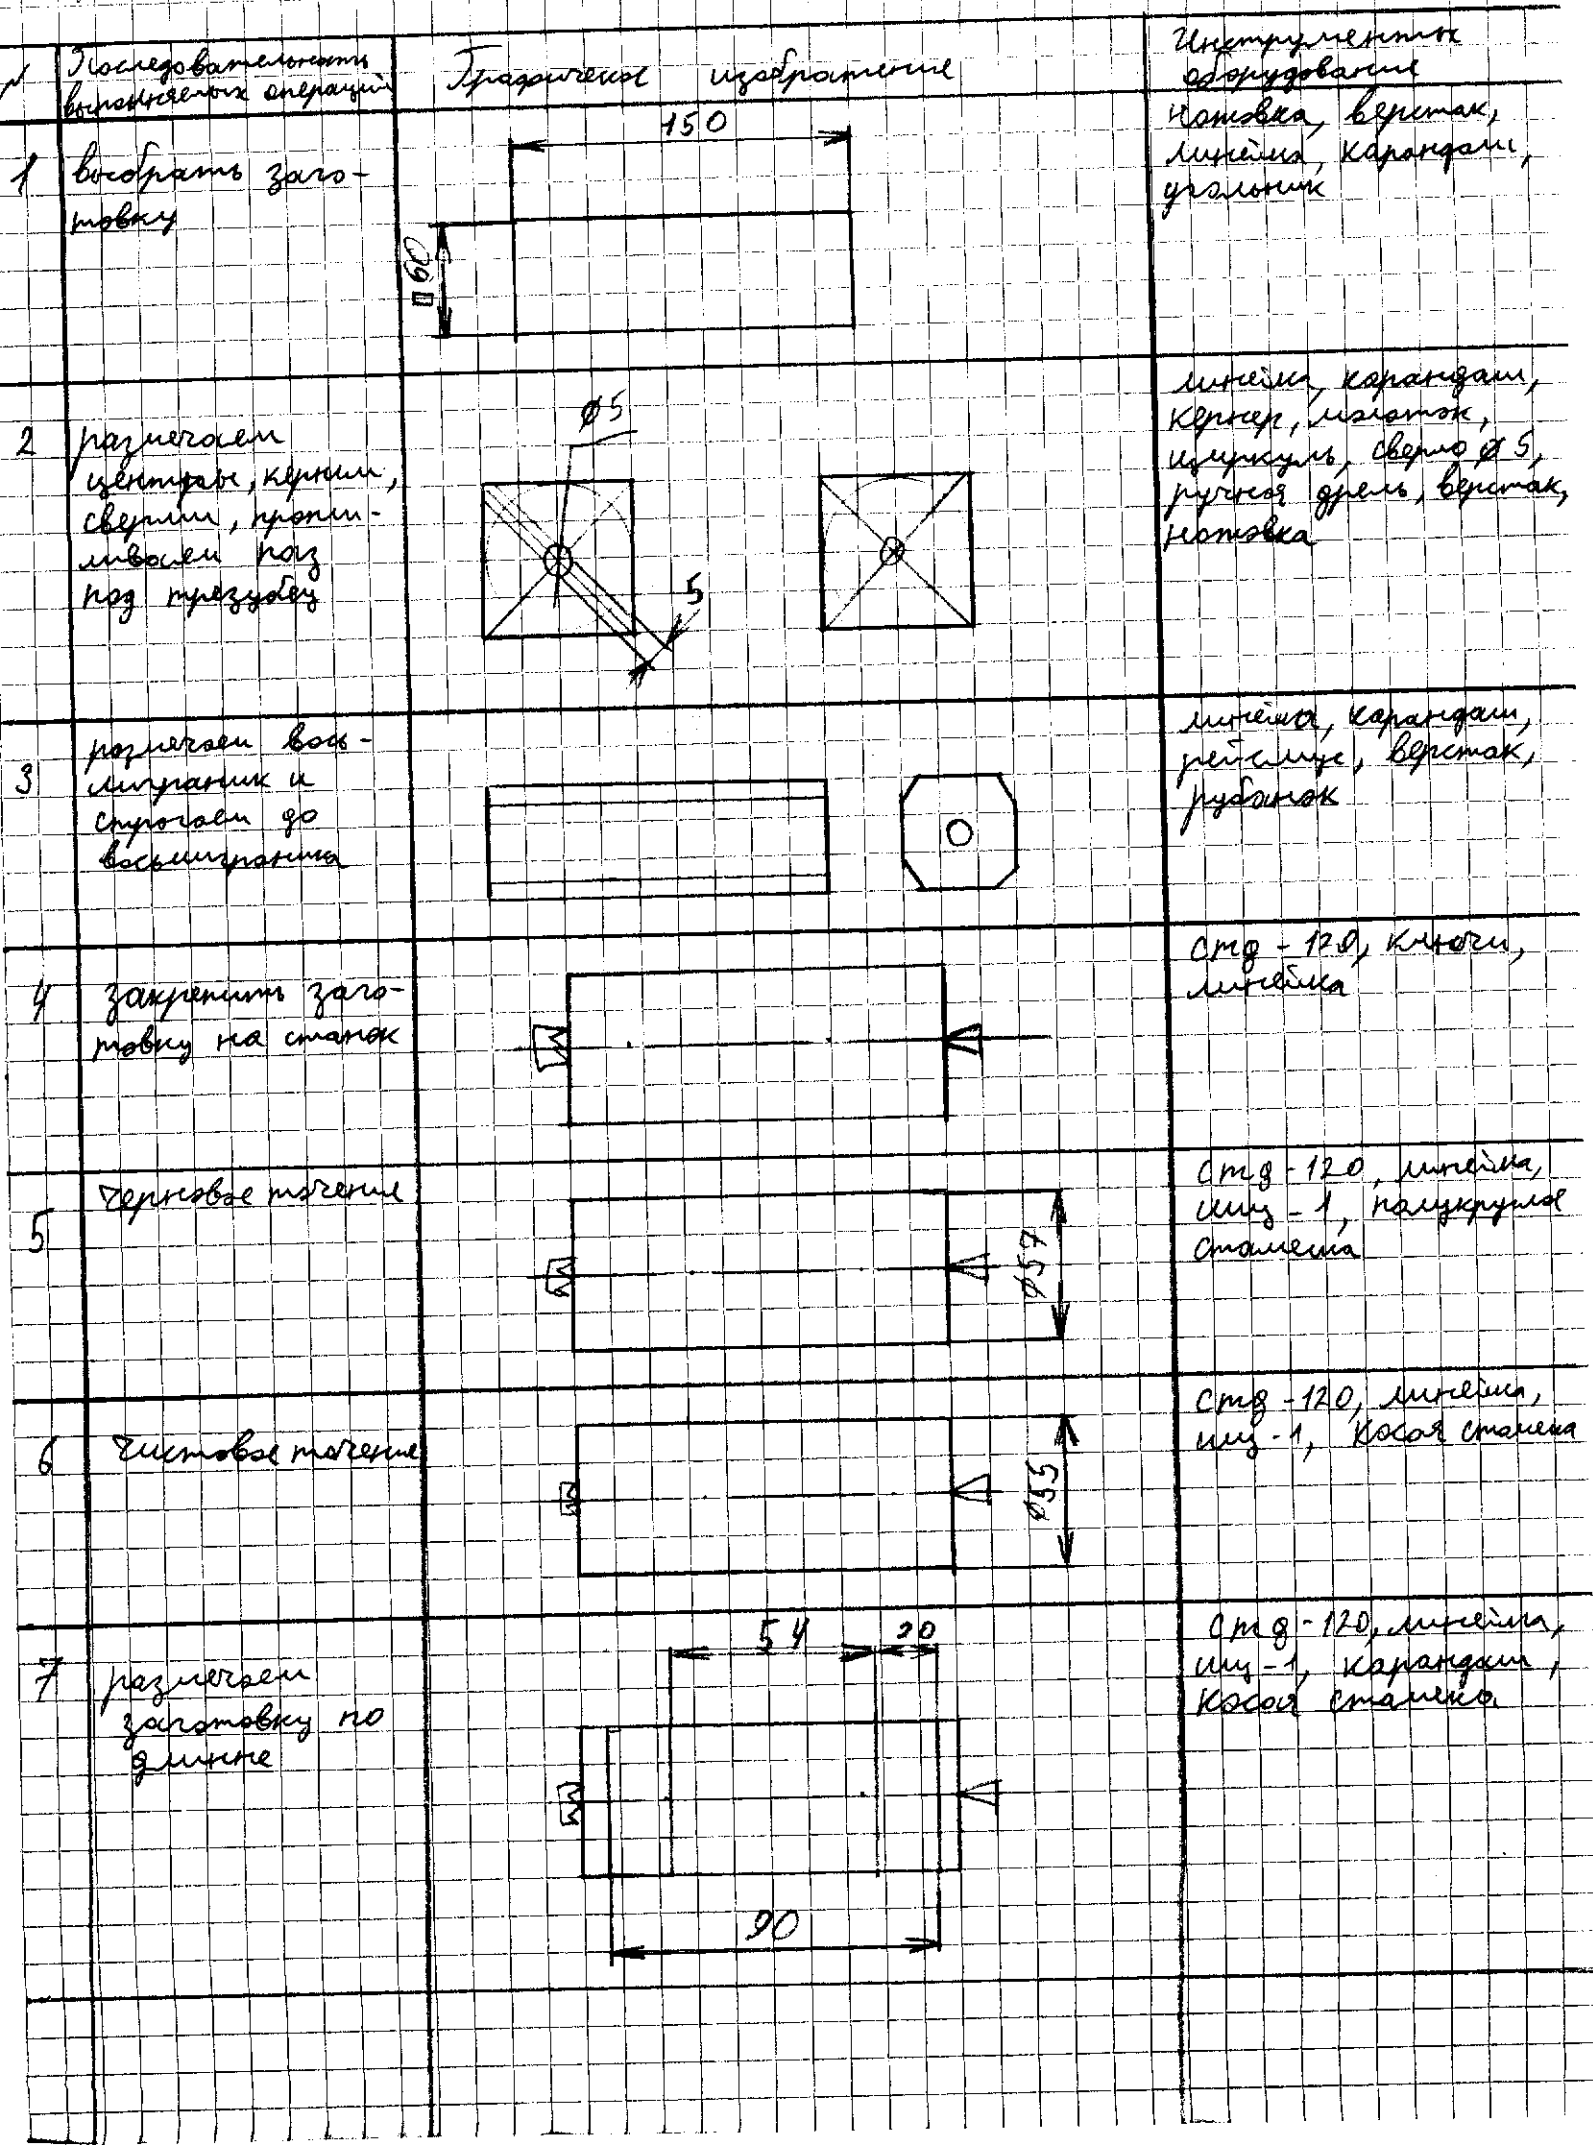 N
Последовательность
выполняемых операций
Графическое изображение
Инструменты
оборудование
1
выбрать заго-
товку
150
□60
ножовка, верстак,
линейка, карандаш,
угольник
2
размечаем
центры, керним,
сверлим, пропи-
ливаем паз
под трезубец
ø5
5
линейка, карандаш,
кернер, молоток,
циркуль, сверло ø5,
ручная дрель, верстак,
ножовка
3
размечаем вось-
мигранник и
строгаем до
восьмигранника
линейка, карандаш,
рейсмус, верстак,
рубанок
4
закрепить заго-
товку на станок
стд - 120, ключи,
линейка
5
Черновое точение
ø57
стд - 120, линейка,
шц - 1, полукруглая
стамеска
6
Чистовое точение
ø55
стд - 120, линейка,
шц - 1, косая стамеска
7
размечаем
заготовку по
длинне
54
20
90
стд - 120, линейка,
шц - 1, карандаш,
косая стамеска